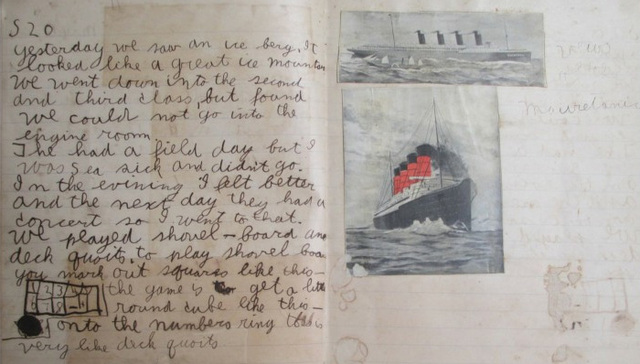 S 20
yesterday we saw an ice berg. It
looked like a great ice mountain
We went down into the second
and third class, but found
we could not go into the
engine room
The had a field day but I
was sea sick and didn't go.
In the evining I felt better
and the next day they had a
concert so I went to that.
We played shovel-board and
deck quoits, to play shovel boa
you mark out squares like this-
the game is to get a litt
round cube like this-
onto the numbers ring this is
very like deck quoits
Mauretania